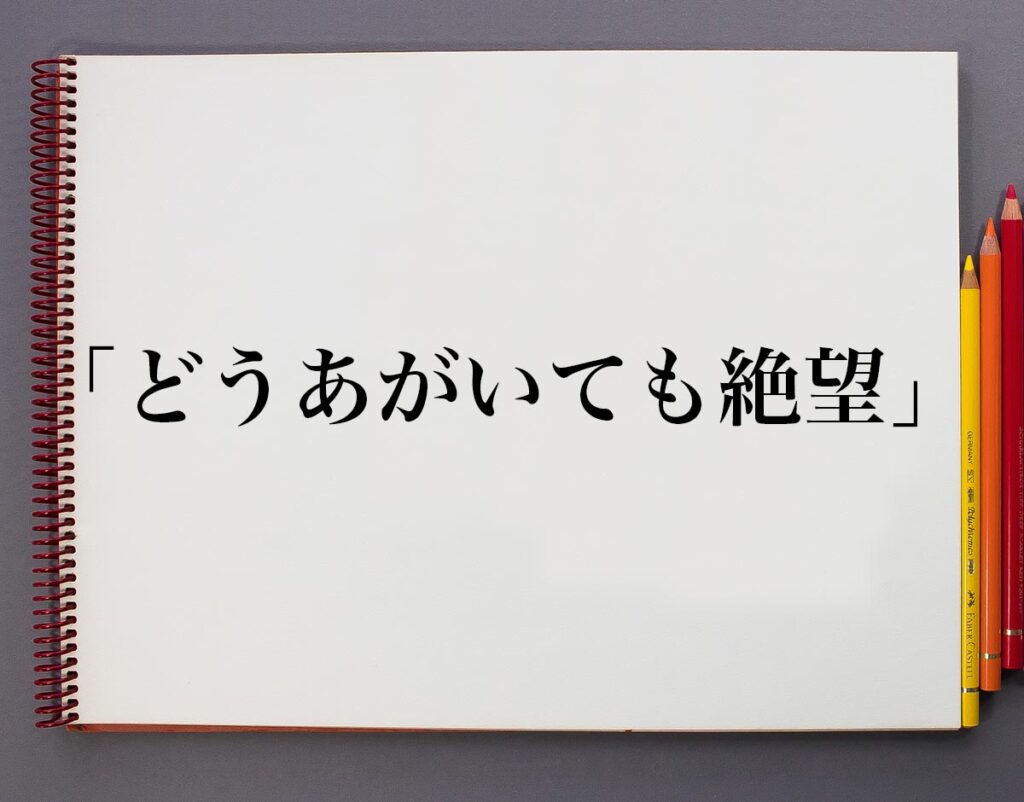 「どうあがいても絶望」
GERMANY
Polychromos
FABER-CASTELL